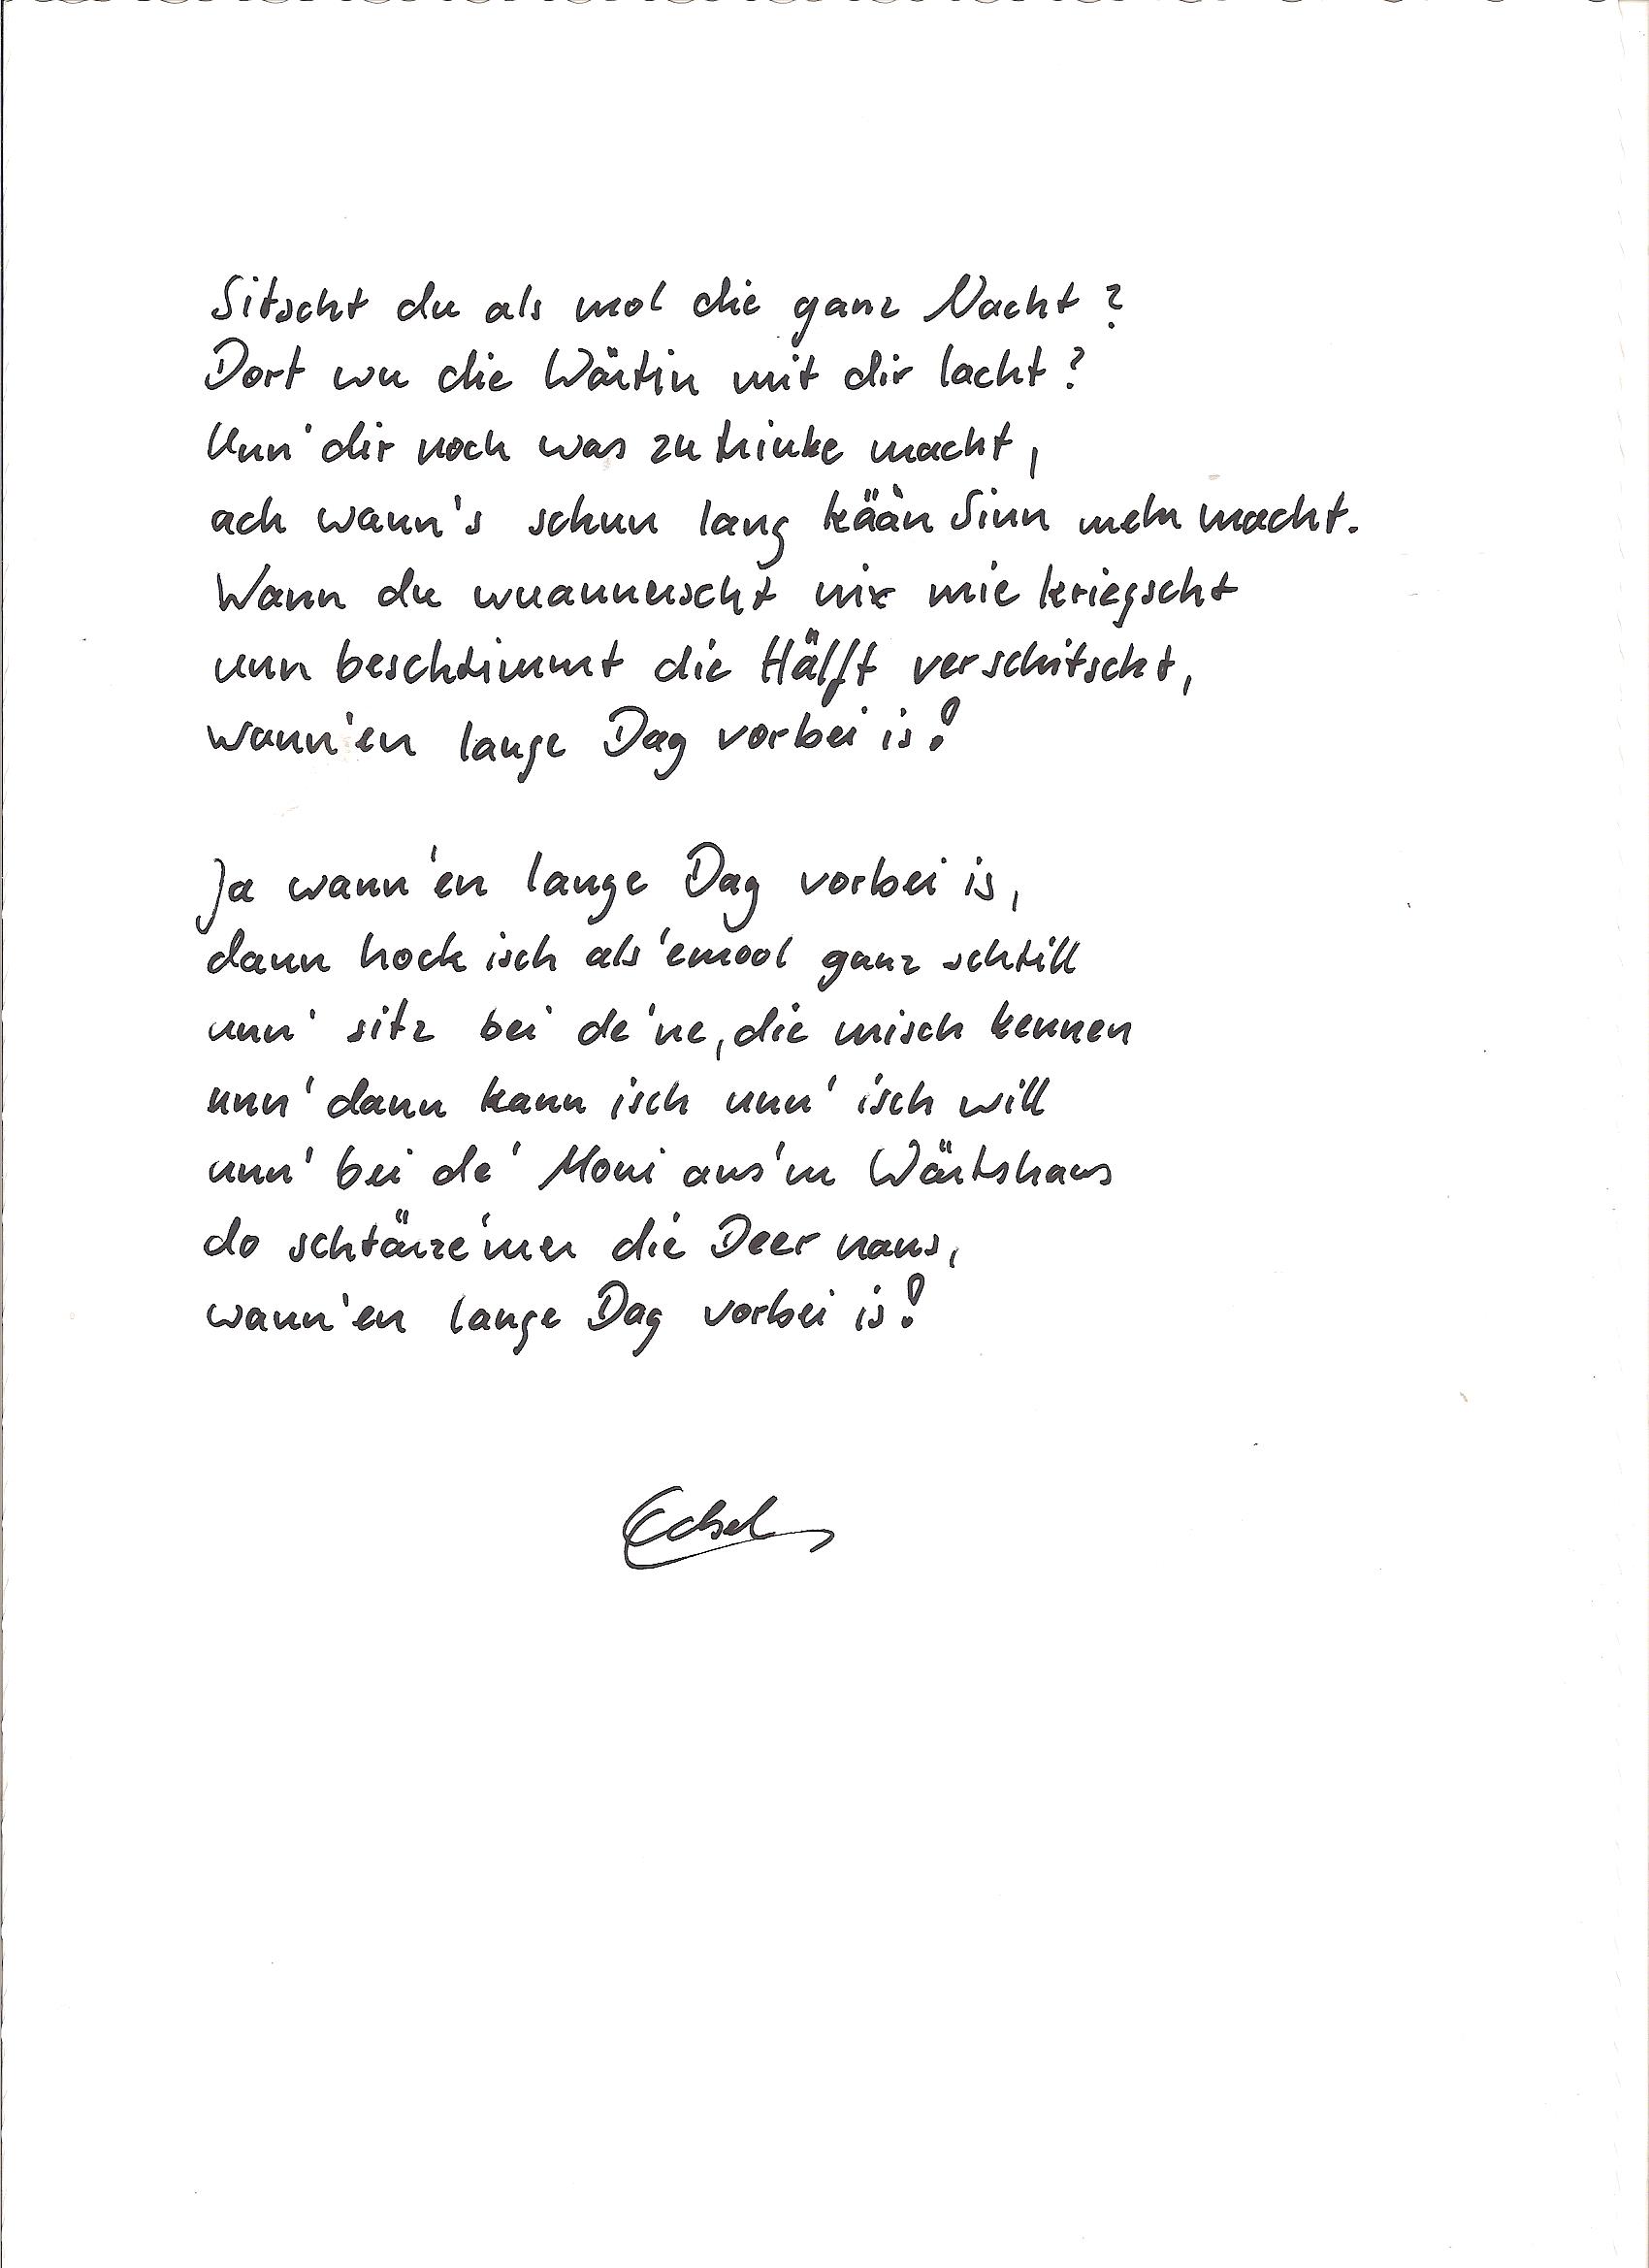 Sitscht du als mol die ganz Nacht?
Dort wu die Wärtin mit dir lacht?
Unn' dir noch was zu trinke macht,
ach wann's schun lang kään Sinn mehr macht.
Wann du wuannerscht nix mie kriegscht
unn beschtimmt die Hälft verschitscht,
wann'en lange Dag vorbei is!
Ja wann'en lange Dag vorbei is,
dann hock isch als'emool ganz schtill
unn' sitz bei de'ne, die misch kennen
unn' dann kann isch unn' isch will
unn' bei de' Moni aus'm Wärtshaus
do schtärze'mer die Deer naus,
wann'en lange Dag vorbei is!